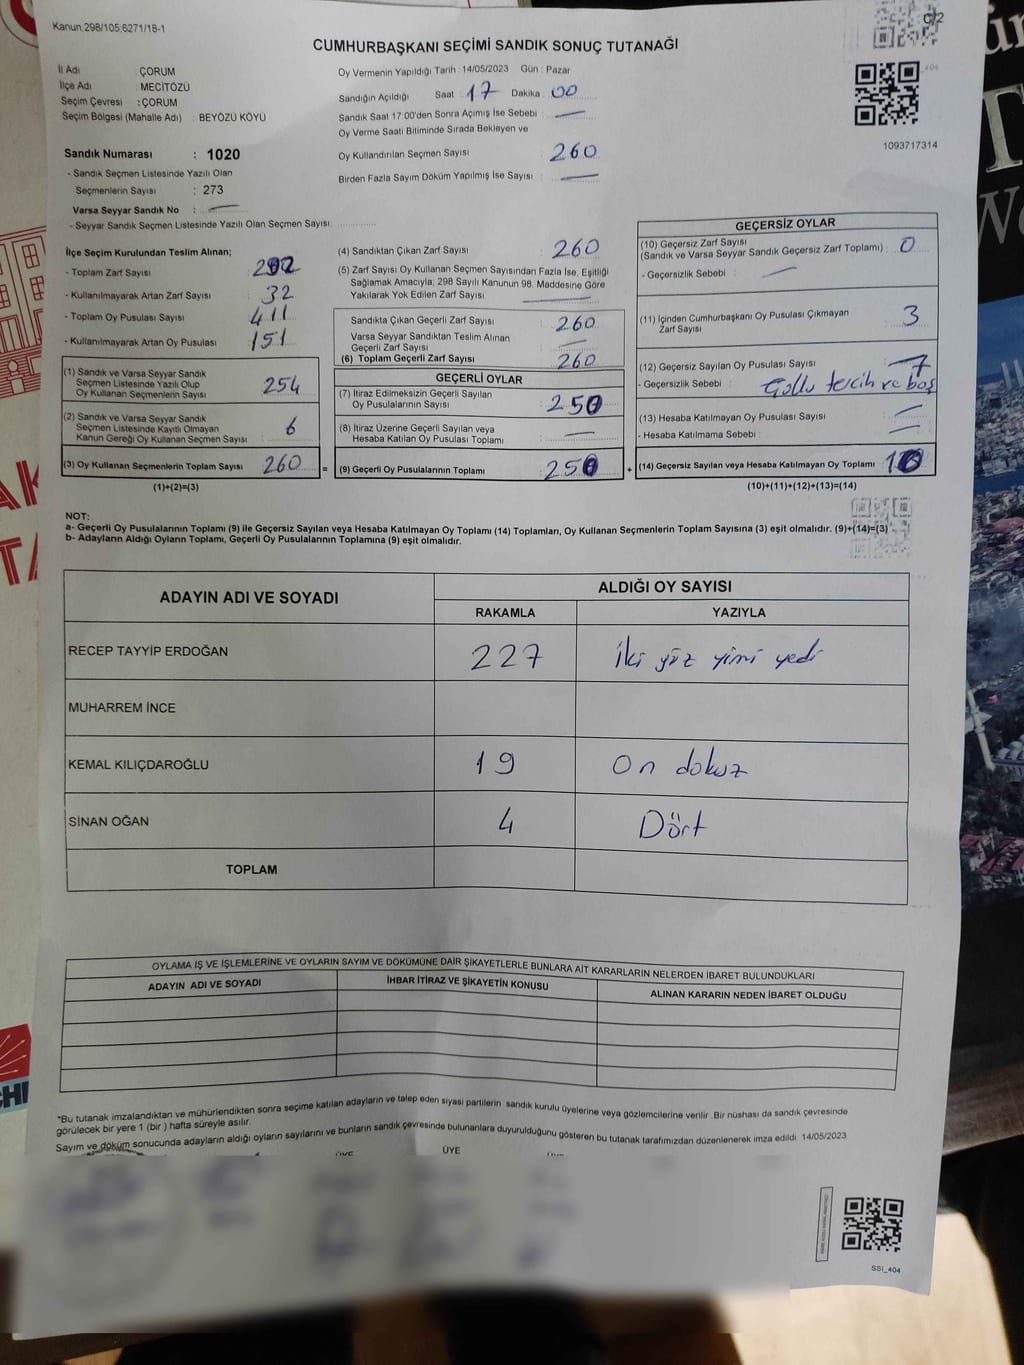 Kanun:298/105;6271/18-1
C/2
CUMHURBAŞKANI SEÇİMİ SANDIK SONUÇ TUTANAĞI
İl Adı : ÇORUM
İlçe Adı : MECİTÖZÜ
Seçim Çevresi : ÇORUM
Seçim Bölgesi (Mahalle Adı) : BEYÖZÜ KÖYÜ
Sandık Numarası : 1020
- Sandık Seçmen Listesinde Yazılı Olan
Seçmenlerin Sayısı : 273
Varsa Seyyar Sandık No : —
- Seyyar Sandık Seçmen Listesinde Yazılı Olan Seçmen Sayısı
Oy Vermenin Yapıldığı Tarih : 14/05/2023 Gün : Pazar
Sandığın Açıldığı Saat : 17 Dakika : 00
Sandık Saat 17:00'den Sonra Açımış İse Sebebi : —
Oy Verme Saati Bitiminde Sırada Bekleyen ve
Oy Kullandırılan Seçmen Sayısı : 260
Birden Fazla Sayım Döküm Yapılmış İse Sayısı : —
1093717314
İlçe Seçim Kurulundan Teslim Alınan;
- Toplam Zarf Sayısı :
- Kullanılmayarak Artan Zarf Sayısı : 32
- Toplam Oy Pusulası Sayısı : 411
- Kullanılmayarak Artan Oy Pusulası : 151
(1) Sandık ve Varsa Seyyar Sandık
Seçmen Listesinde Yazılı Olup
Oy Kullanan Seçmenlerin Sayısı : 254
(2) Sandık ve Varsa Seyyar Sandık
Seçmen Listesinde Kayıtlı Olmayan
Kanun Gereği Oy Kullanan Seçmen Sayısı : 6
(3) Oy Kullanan Seçmenlerin Toplam Sayısı : 260 =
(1)+(2)=(3)
(4) Sandıktan Çıkan Zarf Sayısı : 260
(5) Zarf Sayısı Oy Kullanan Seçmen Sayısından Fazla İse, Eşitliği
Sağlamak Amacıyla; 298 Sayılı Kanunun 98. Maddesine Göre
Yakılarak Yok Edilen Zarf Sayısı : —
Sandıkta Çıkan Geçerli Zarf Sayısı : 260
Varsa Seyyar Sandıktan Teslim Alınan
Geçerli Zarf Sayısı : —
(6) Toplam Geçerli Zarf Sayısı : 260
GEÇERLİ OYLAR
(7) İtiraz Edilmeksizin Geçerli Sayılan
Oy Pusulalarının Sayısı : 250
(8) İtiraz Üzerine Geçerli Sayılan veya
Hesaba Katılan Oy Pusulası Toplamı : —
(9) Geçerli Oy Pusulalarının Toplamı : 250 +
GEÇERSİZ OYLAR
(10) Geçersiz Zarf Sayısı
(Sandık ve Varsa Seyyar Sandık Geçersiz Zarf Toplamı) : 0
- Geçersizlik Sebebi : —
(11) İçinden Cumhurbaşkanı Oy Pusulası Çıkmayan
Zarf Sayısı : 3
(12) Geçersiz Sayılan Oy Pusulası Sayısı : 7
- Geçersizlik Sebebi : tercih ve boş
(13) Hesaba Katılmayan Oy Pusulası Sayısı : —
- Hesaba Katılmama Sebebi : —
(14) Geçersiz Sayılan veya Hesaba Katılmayan Oy Toplamı : 10
(10)+(11)+(12)+(13)=(14)
NOT:
a- Geçerli Oy Pusulalarının Toplamı (9) ile Geçersiz Sayılan veya Hesaba Katılmayan Oy Toplamı (14) Toplamları, Oy Kullanan Seçmenlerin Toplam Sayısına (3) eşit olmalıdır. (9)+(14)=(3)
b- Adayların Aldığı Oyların Toplamı, Geçerli Oy Pusulalarının Toplamına (9) eşit olmalıdır.
ADAYIN ADI VE SOYADI ALDIĞI OY SAYISI
RAKAMLA YAZIYLA
RECEP TAYYİP ERDOĞAN 227 İki yüz yirmi yedi
MUHARREM İNCE
KEMAL KILIÇDAROĞLU 19 On dokuz
SİNAN OĞAN 4 Dört
TOPLAM
OYLAMA İŞ VE İŞLEMLERİNE VE OYLARIN SAYIM VE DÖKÜMÜNE DAİR ŞİKAYETLERLE BUNLARA AİT KARARLARIN NELERDEN İBARET BULUNDUKLARI
ADAYIN ADI VE SOYADI İHBAR İTİRAZ VE ŞİKAYETİN KONUSU ALINAN KARARIN NEDEN İBARET OLDUĞU
*Bu tutanak imzalandıktan ve mühürlendikten sonra seçime katılan adayların ve talep eden siyasi partilerin sandık kurulu üyelerine veya gözlemcilerine verilir. Bir nüshası da sandık çevresinde
görülecek bir yere 1 (bir ) hafta süreyle asılır.
Sayım ve döküm sonucunda adayların aldığı oyların sayılarını ve bunların sandık çevresinde bulunanlara duyurulduğunu gösteren bu tutanak tarafımızdan düzenlenerek imza edildi. 14/05/2023
ÜYE ÜYE
SSI_404